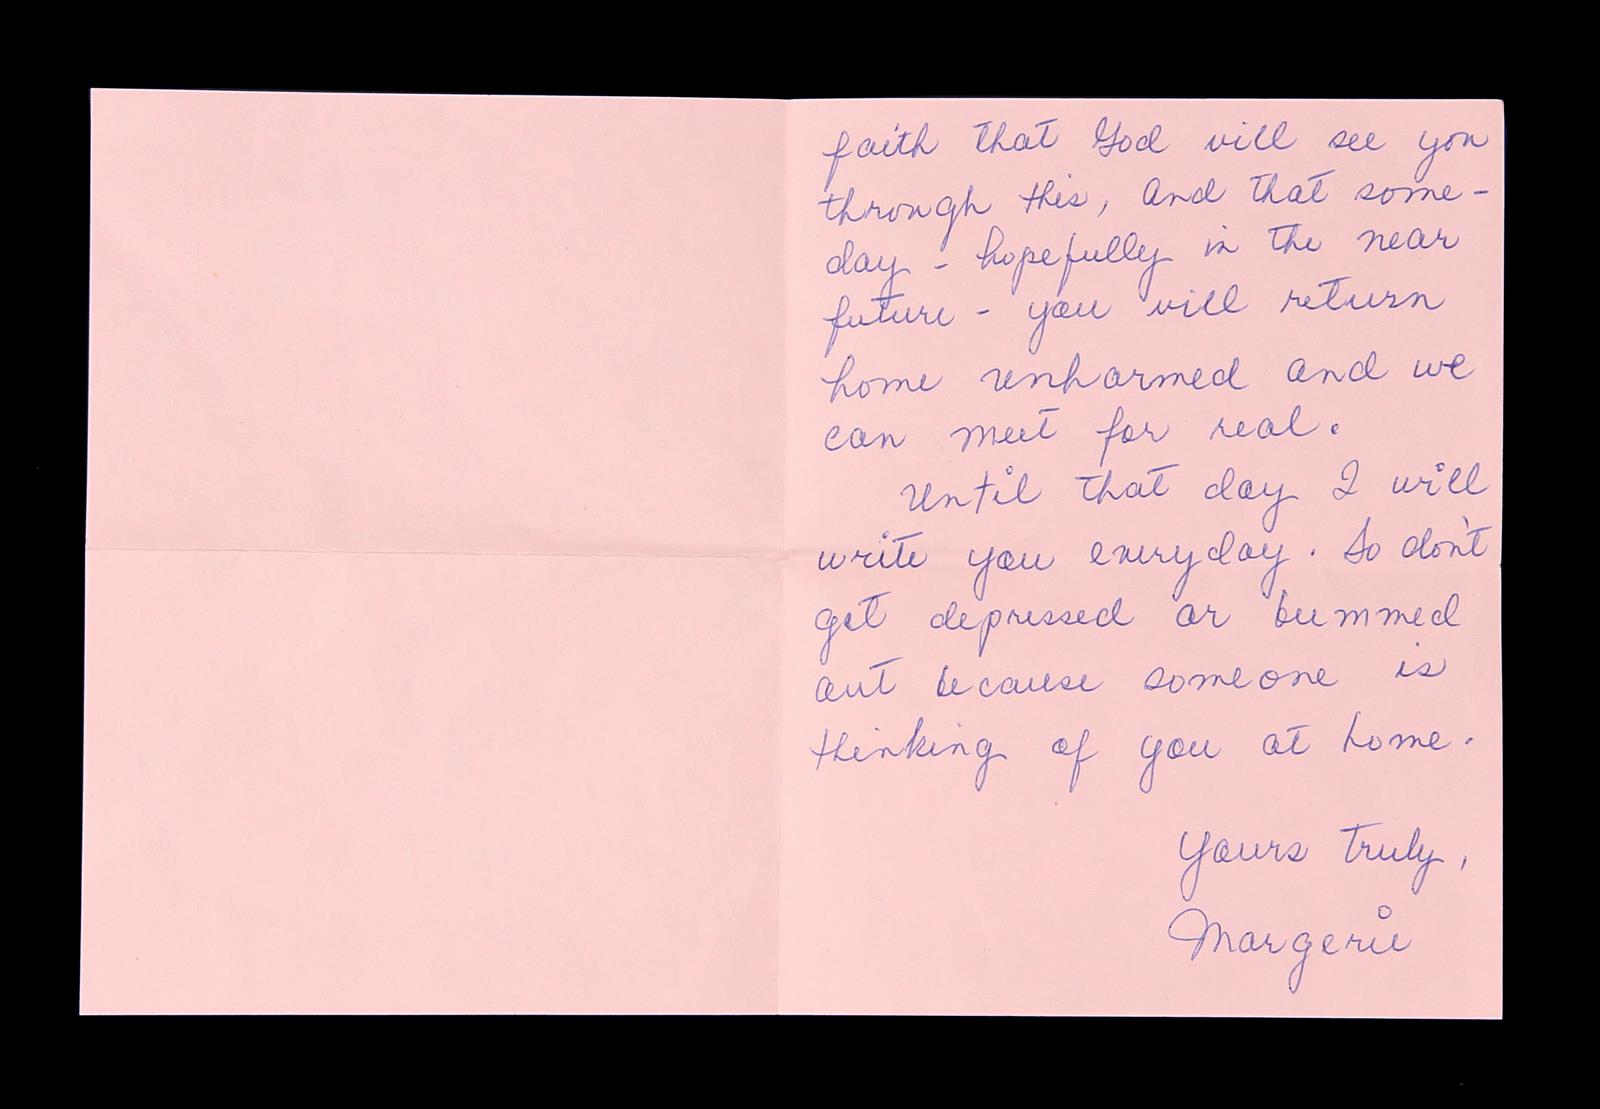 faith that God will see you
through this, and that some-
day - hopefully in the near
future - you will return
home unharmed and we
can meet for real.
Until that day I will
write you everyday. So don't
get depressed or bummed
out because someone is
thinking of you at home.
Yours truly,
Margerie